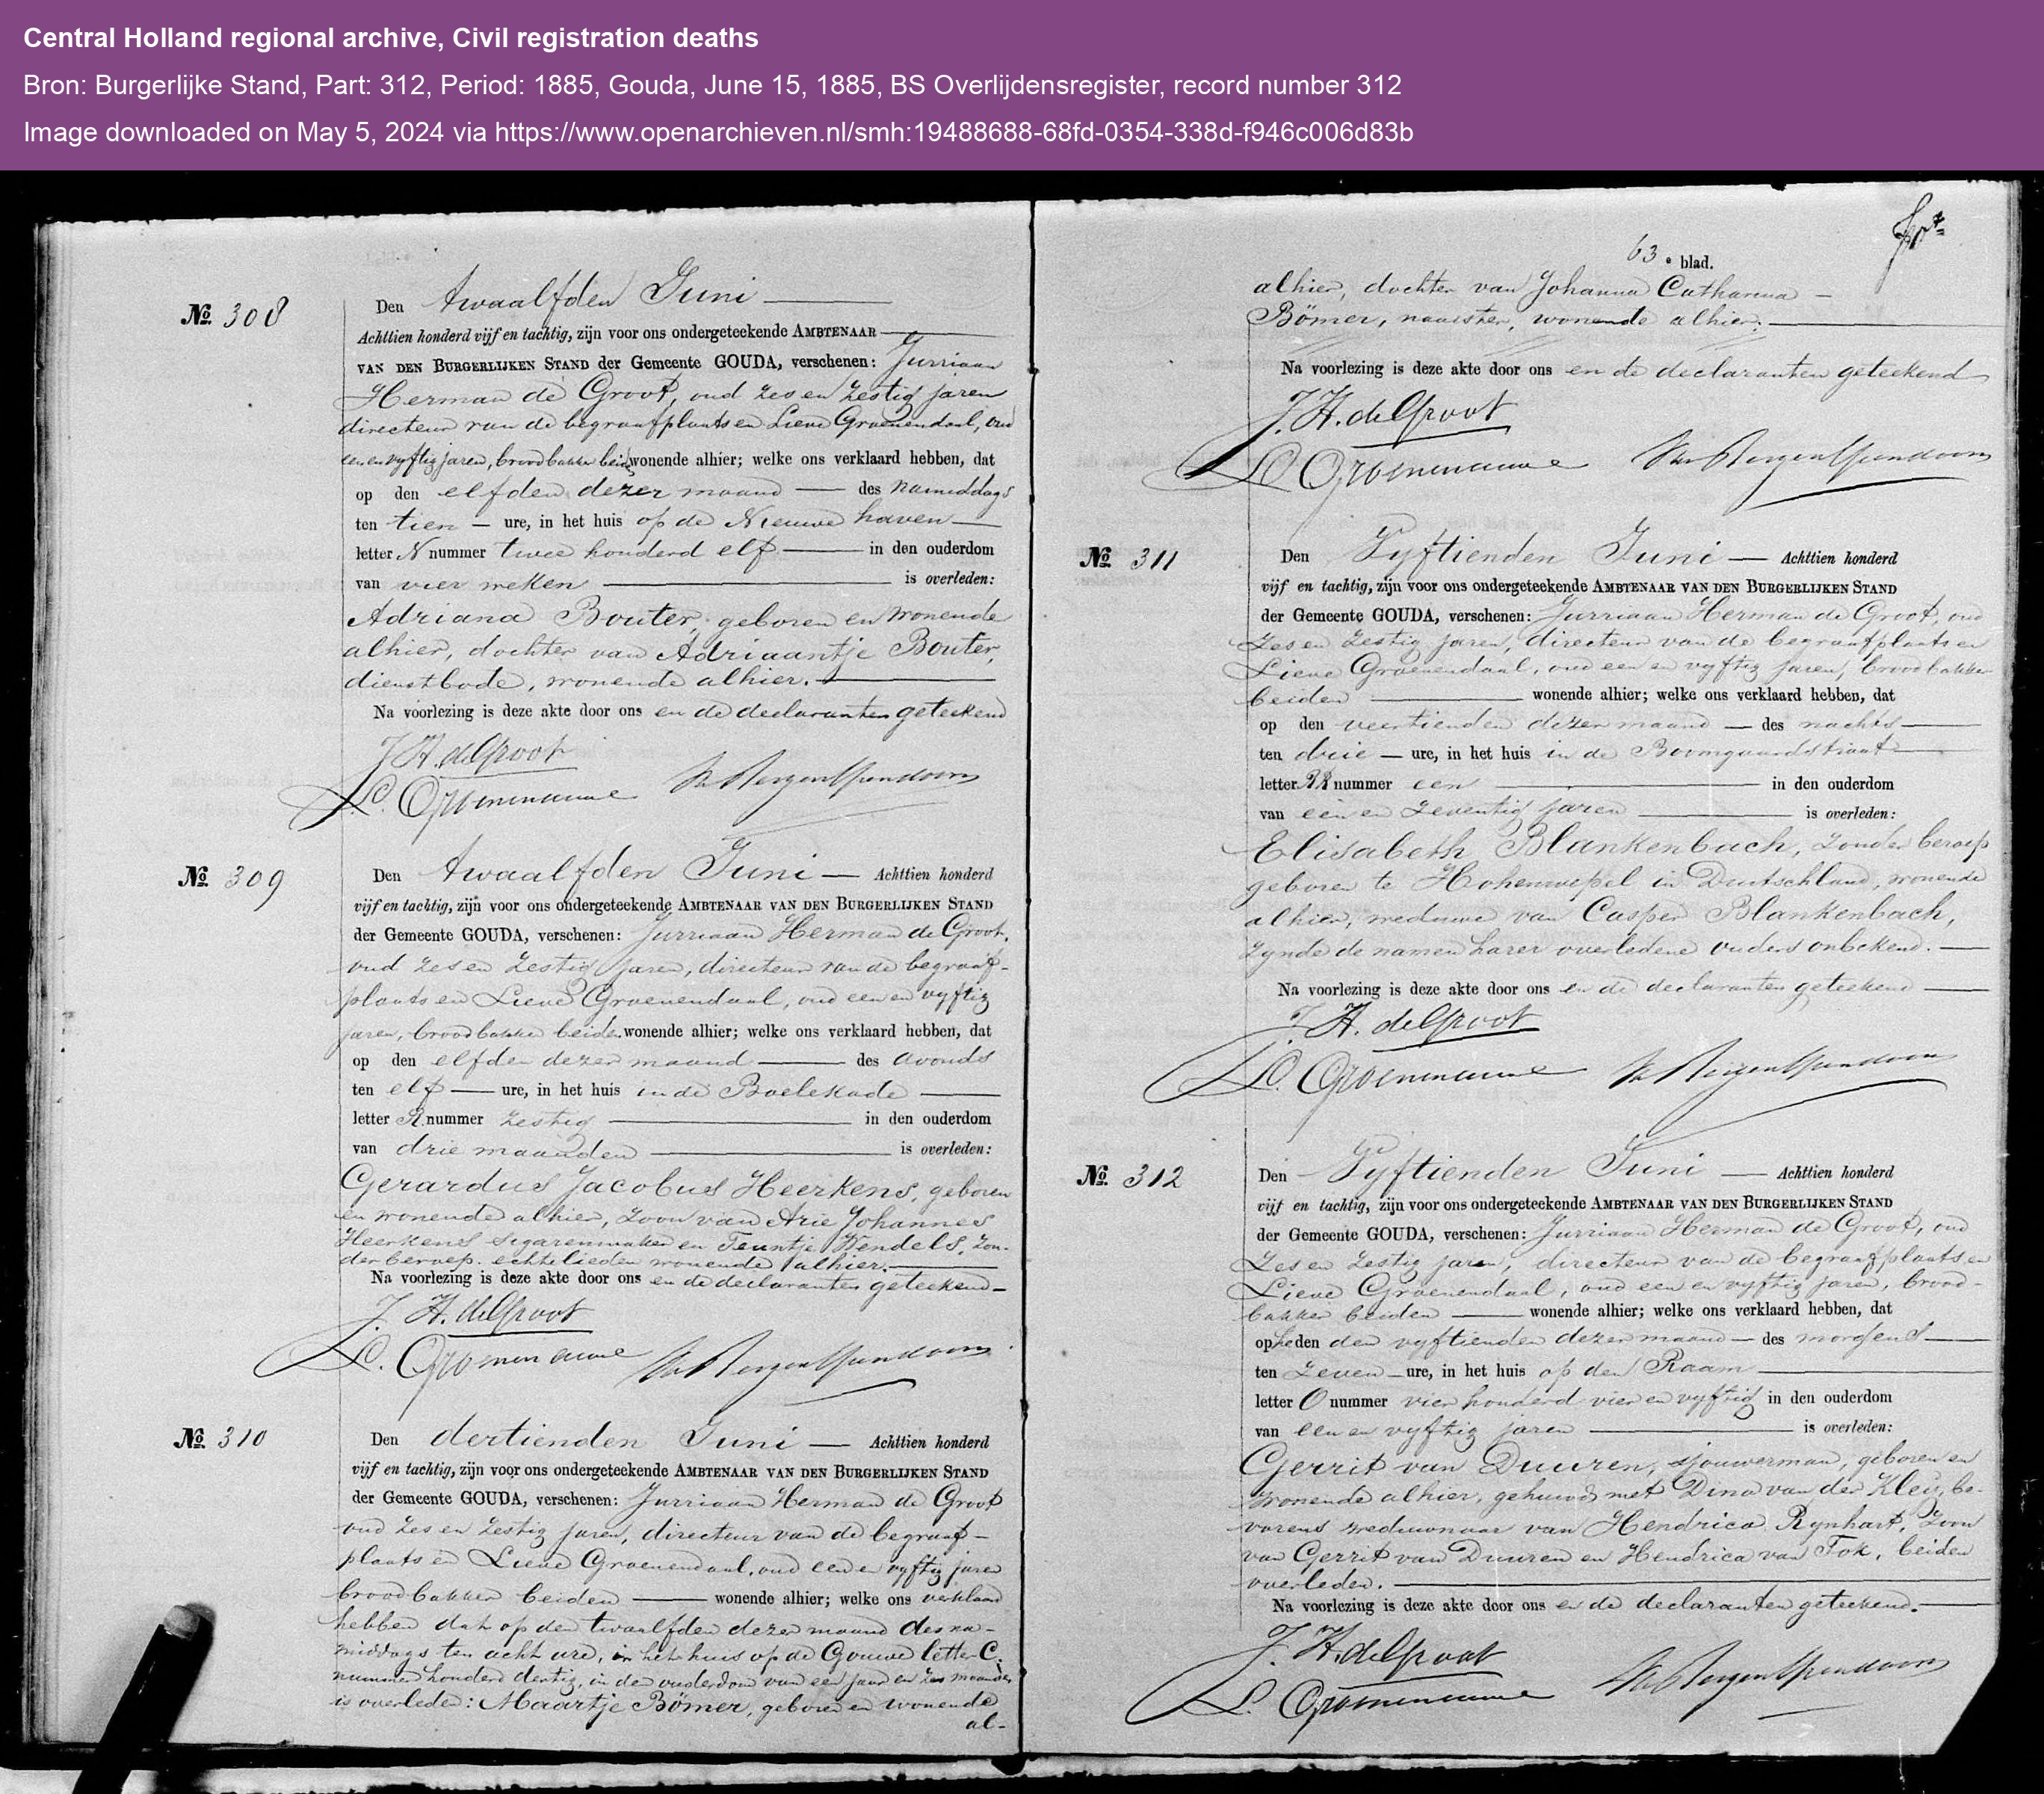 Central Holland regional archive, Civil registration deaths
Bron: Burgerlijke Stand, Part: 312, Period: 1885, Gouda, June 15, 1885, BS Overlijdensregister, record number 312
Image downloaded on May 5, 2024 via https://www.openarchieven.nl/smh:19488688-68fd-0354-338d-f946c006d83b
№ 308
Den twaalfden Juni
Achttien honderd vijf en tachtig, zijn voor ons ondergeteekende AMBTENAAR
VAN DEN BURGERLIJKEN STAND der Gemeente GOUDA, verschenen: Jurriaan
Herman de Groot, oud zes en zestig jaren
directeur van de begraafplaats en Lieve Groenendaal, oud
een en vyftig jaren, broodbakker beide wonende alhier; welke ons verklaard hebben, dat
op den elfden dezer maand des namiddags
ten tien ure, in het huis op de Nieuwe haven
letter N nummer twee honderd elf in den ouderdom
van vier weken is overleden:
Adriana Bouter, geboren en wonende
alhier, dochter van Adriaantje Bouter,
dienstbode, wonende alhier.
Na voorlezing is deze akte door ons en de declaranten geteekend
J. H. de Groot
№ 309
Den twaalfden Juni Achttien honderd
vijf en tachtig, zijn voor ons ondergeteekende AMBTENAAR VAN DEN BURGERLIJKEN STAND
der Gemeente GOUDA, verschenen: Jurriaan Herman de Groot,
oud zes en zestig jaren, directeur van de begraaf-
plaats en Lieve Groenendaal, oud een en vyftig
jaren, broodbakker beide wonende alhier; welke ons verklaard hebben, dat
op den elfden dezer maand des avonds
ten elf ure, in het huis in de Boelekade
letter R nummer zestig in den ouderdom
van drie maanden is overleden:
Gerardus Jacobus Heerkens, geboren
en wonende alhier, zoon van Arie Johannes
Heerkens sigarenmaker en Teuntje Wendels, zon-
der beroep. echtelieden wonende alhier.
Na voorlezing is deze akte door ons en de declaranten geteekend
J. H. de Groot
№ 310
Den dertienden Juni Achttien honderd
vijf en tachtig, zijn voor ons ondergeteekende AMBTENAAR VAN DEN BURGERLIJKEN STAND
der Gemeente GOUDA, verschenen: Jurriaan Herman de Groot
oud zes en zestig jaren, directeur van de begraaf-
plaats en Lieve Groenendaal, oud een en vyftig jaren
broodbakker beiden wonende alhier; welke ons verklaard
hebben dat op den twaalfden dezer maand des na-
middags ten acht ure, in het huis op de Gouwe letter C.
nummer honderd dertig, in den ouderdom van een jaar en zes maanden
is overleden: Maartje Bömer, geboren en wonende
al-
63e blad.
alhier, dochter van Johanna Catharina
Bömer, naaister, wonende alhier.
Na voorlezing is deze akte door ons en de declaranten geteekend
J. H. de Groot
№ 311
Den Vyftienden Juni Achttien honderd
vijf en tachtig, zijn voor ons ondergeteekende AMBTENAAR VAN DEN BURGERLIJKEN STAND
der Gemeente GOUDA, verschenen: Jurriaan Herman de Groot, oud
zes en zestig jaren, directeur van de begraafplaats en
Lieve Groenendaal, oud een en vyftig jaren, broodbakker
beiden wonende alhier; welke ons verklaard hebben, dat
op den veertienden dezer maand des nachts
ten drie ure, in het huis in de Boomgaardstraat
letter nummer een in den ouderdom
van een en zeventig jaren is overleden:
Elisabeth Blankenbach, zonder beroep
geboren te Hohenwepel in Duitschland, wonende
alhier, weduwe van Casper Blankenbach,
zynde de namen harer overledene ouders onbekend.
Na voorlezing is deze akte door ons en de declaranten geteekend
J. H. de Groot
№ 312
Den Vyftienden Juni Achttien honderd
vijf en tachtig, zijn voor ons ondergeteekende AMBTENAAR VAN DEN BURGERLIJKEN STAND
der Gemeente GOUDA, verschenen: Jurriaan Herman de Groot, oud
zes en zestig jaren, directeur van de begraafplaats en
Lieve Groenendaal, oud een en vyftig jaren, brood-
bakker beiden wonende alhier; welke ons verklaard hebben, dat
op heden den vyftienden dezer maand des morgens
ten zeven ure, in het huis op den Raam
letter O nummer vier honderd vier en vyftig in den ouderdom
van een en vyftig jaren is overleden:
Gerrit van Duuren, sjouwerman, geboren en
wonende alhier, gehuwd met Dina van der Kley, be-
vorens weduwnaar van Hendrica Rynhart, zoon
van Gerrit van Duuren en Hendrica van Fok, beiden
overleden.
Na voorlezing is deze akte door ons en de declaranten geteekend.
J. H. de Groot